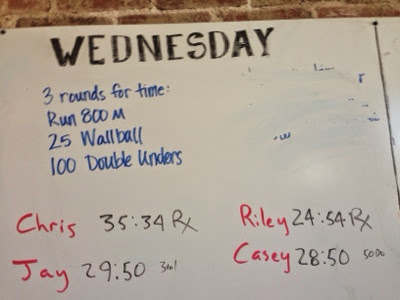 WEDNESDAY
3 rounds for time:
Run 800 M
25 Wallball
100 Double Unders
Chris 35:34 Rx
Riley 24:54 Rx
Jay 29:50 3to1
Casey 28:50